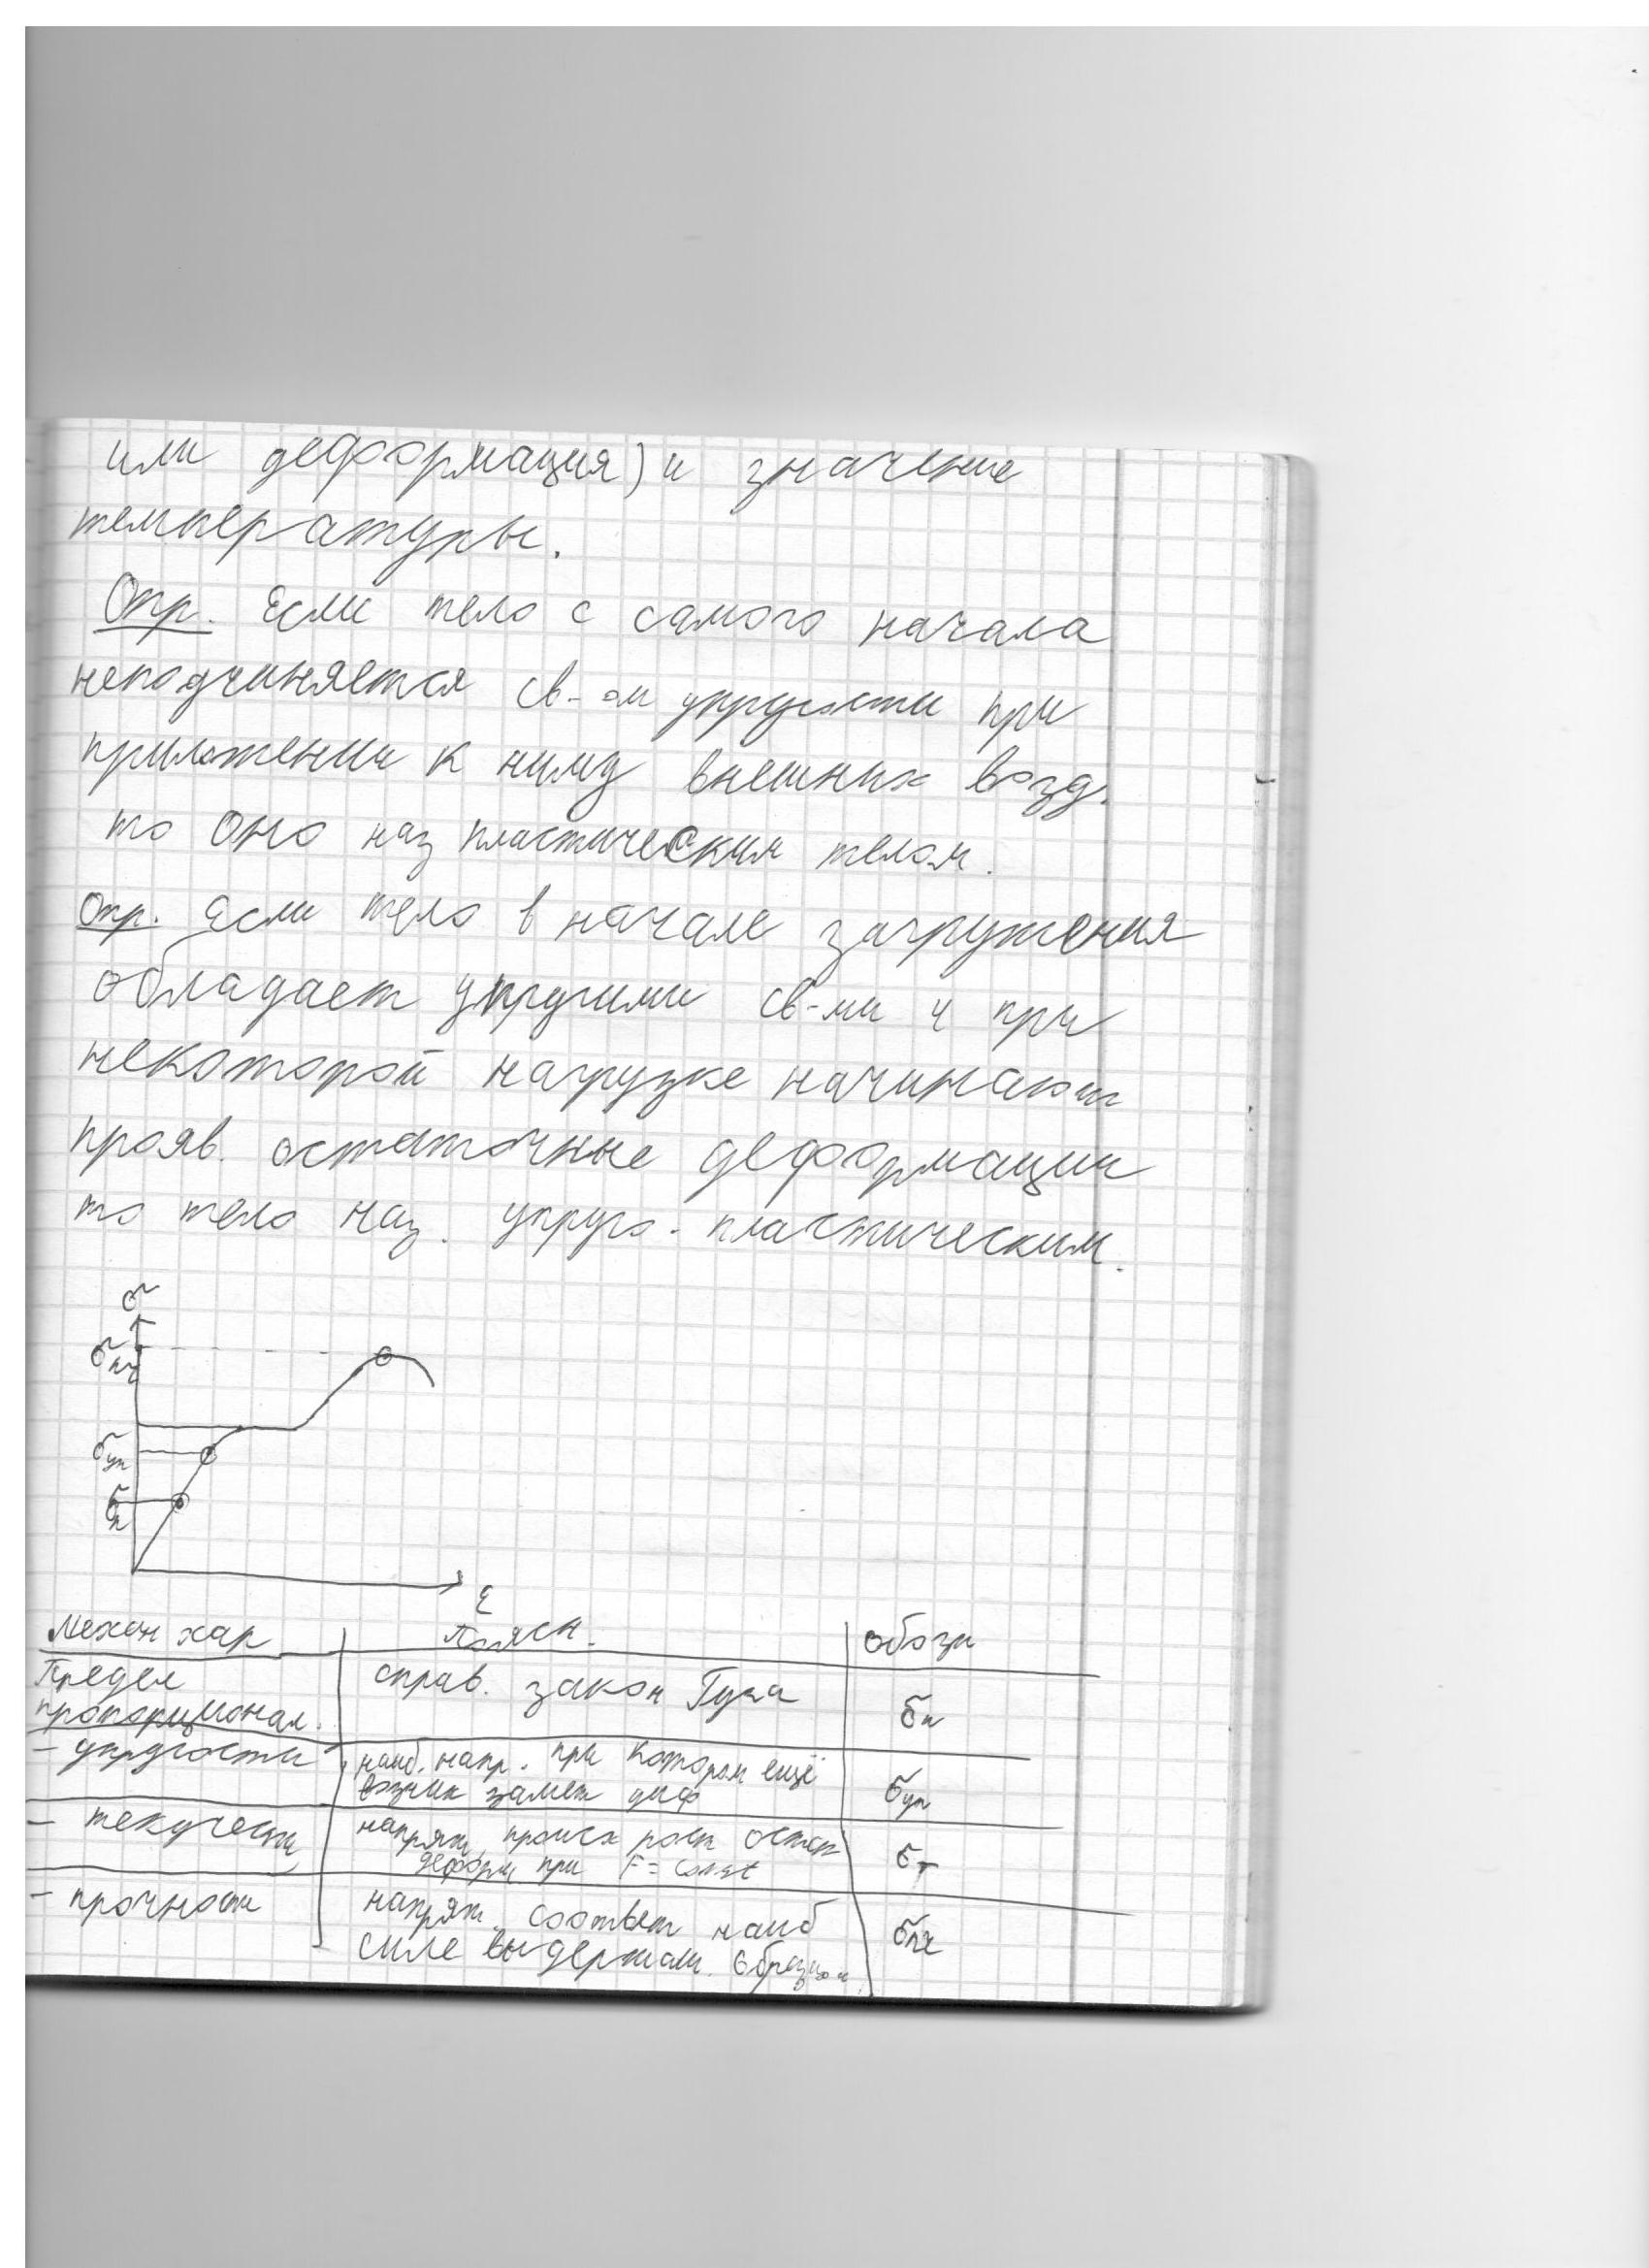 или деформация) и значение
температуры.
Опр. Если тело с самого начала
неподчиняется св-ам упругости при
приложении к нему внешних возд.
то оно наз пластическим телом.
Опр. Если тело в начале загружения
обладает упругими св-ми и при
некоторой нагрузке начинают
прояв. остаточные деформации
то тело наз. упруго-пластическим.
σ
σпч
σуп
σп
ε
Механ хар Поясн. обозн
Предел справ. закон Гука σп
пропорционал.
- упругости наиб. напр. при котором ещё σуп
замет диф
- текучести напряж. происх рост остат σт
деформ при F = const
- прочности напряж. соответ наиб σпч
силе выдержан. образцом